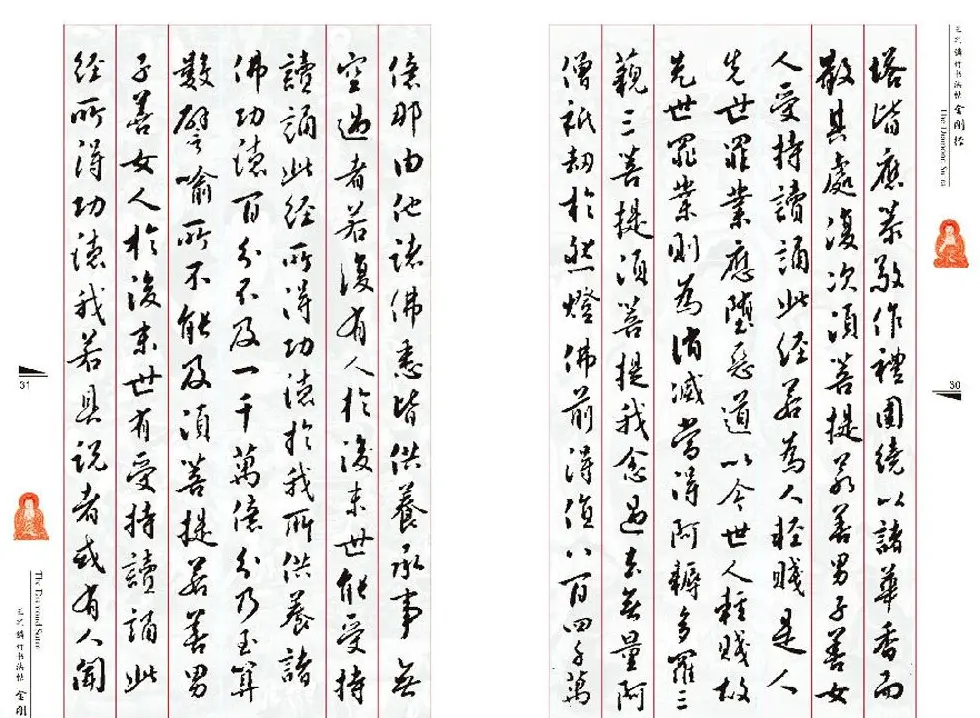 金剛經
The Diamond Sutra
30
塔皆應恭敬作禮圍繞以諸華香而
散其處復次須菩提若善男子善女
人受持讀誦此經若為人輕賤是人
先世罪業應墮惡道以今世人輕賤故
先世罪業則為消滅當得阿耨多羅三
藐三菩提須菩提我念過去無量阿
僧祇劫於然燈佛前得值八百四千萬
億那由他諸佛悉皆供養承事無
空過者若復有人於後末世能受持
讀誦此經所得功德於我所供養諸
佛功德百分不及一千萬億分乃至算
數譬喻所不能及須菩提若善男
子善女人於後末世有受持讀誦此
經所得功德我若具說者或有人聞
31
The Diamond Sutra
金剛